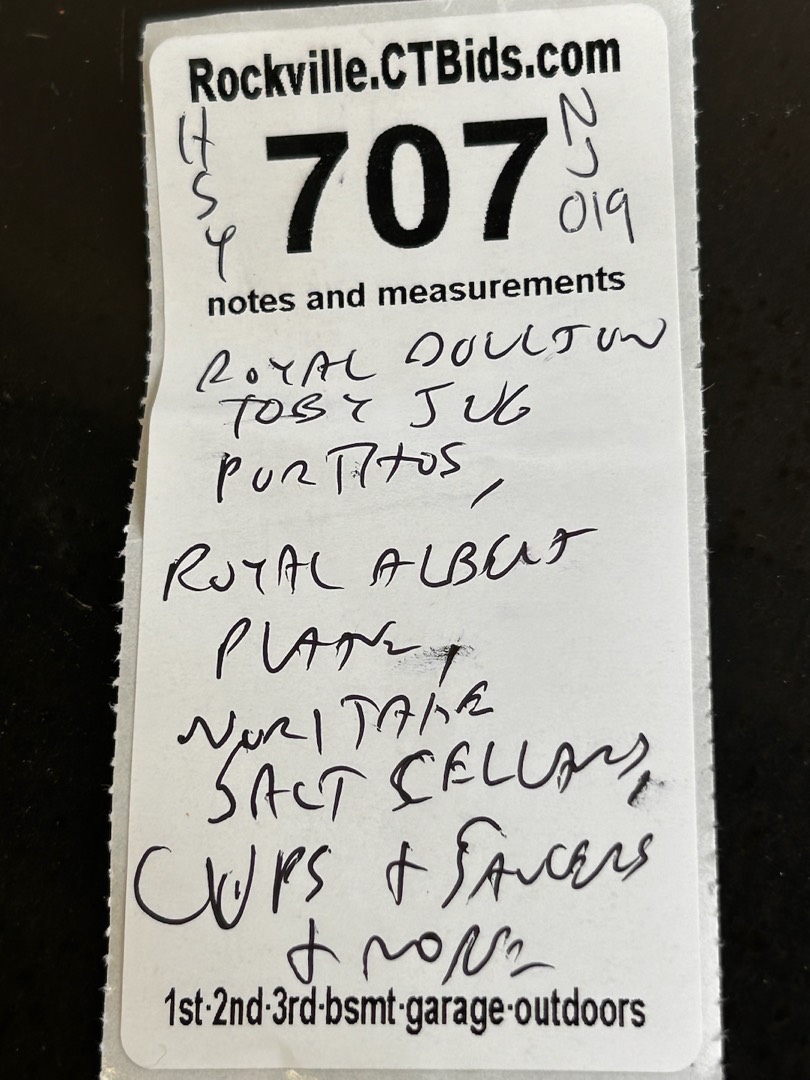 Rockville.CTBids.com
HSY 707 NJ 019
notes and measurements
ROYAL DOULTON
TOBY JUG
PORTHOS,
ROYAL ALBERT
PLATE,
NORITAKE
SALT CELLARS,
CUPS + SAUCERS
+ MORE
1st·2nd·3rd·bsmt·garage·outdoors